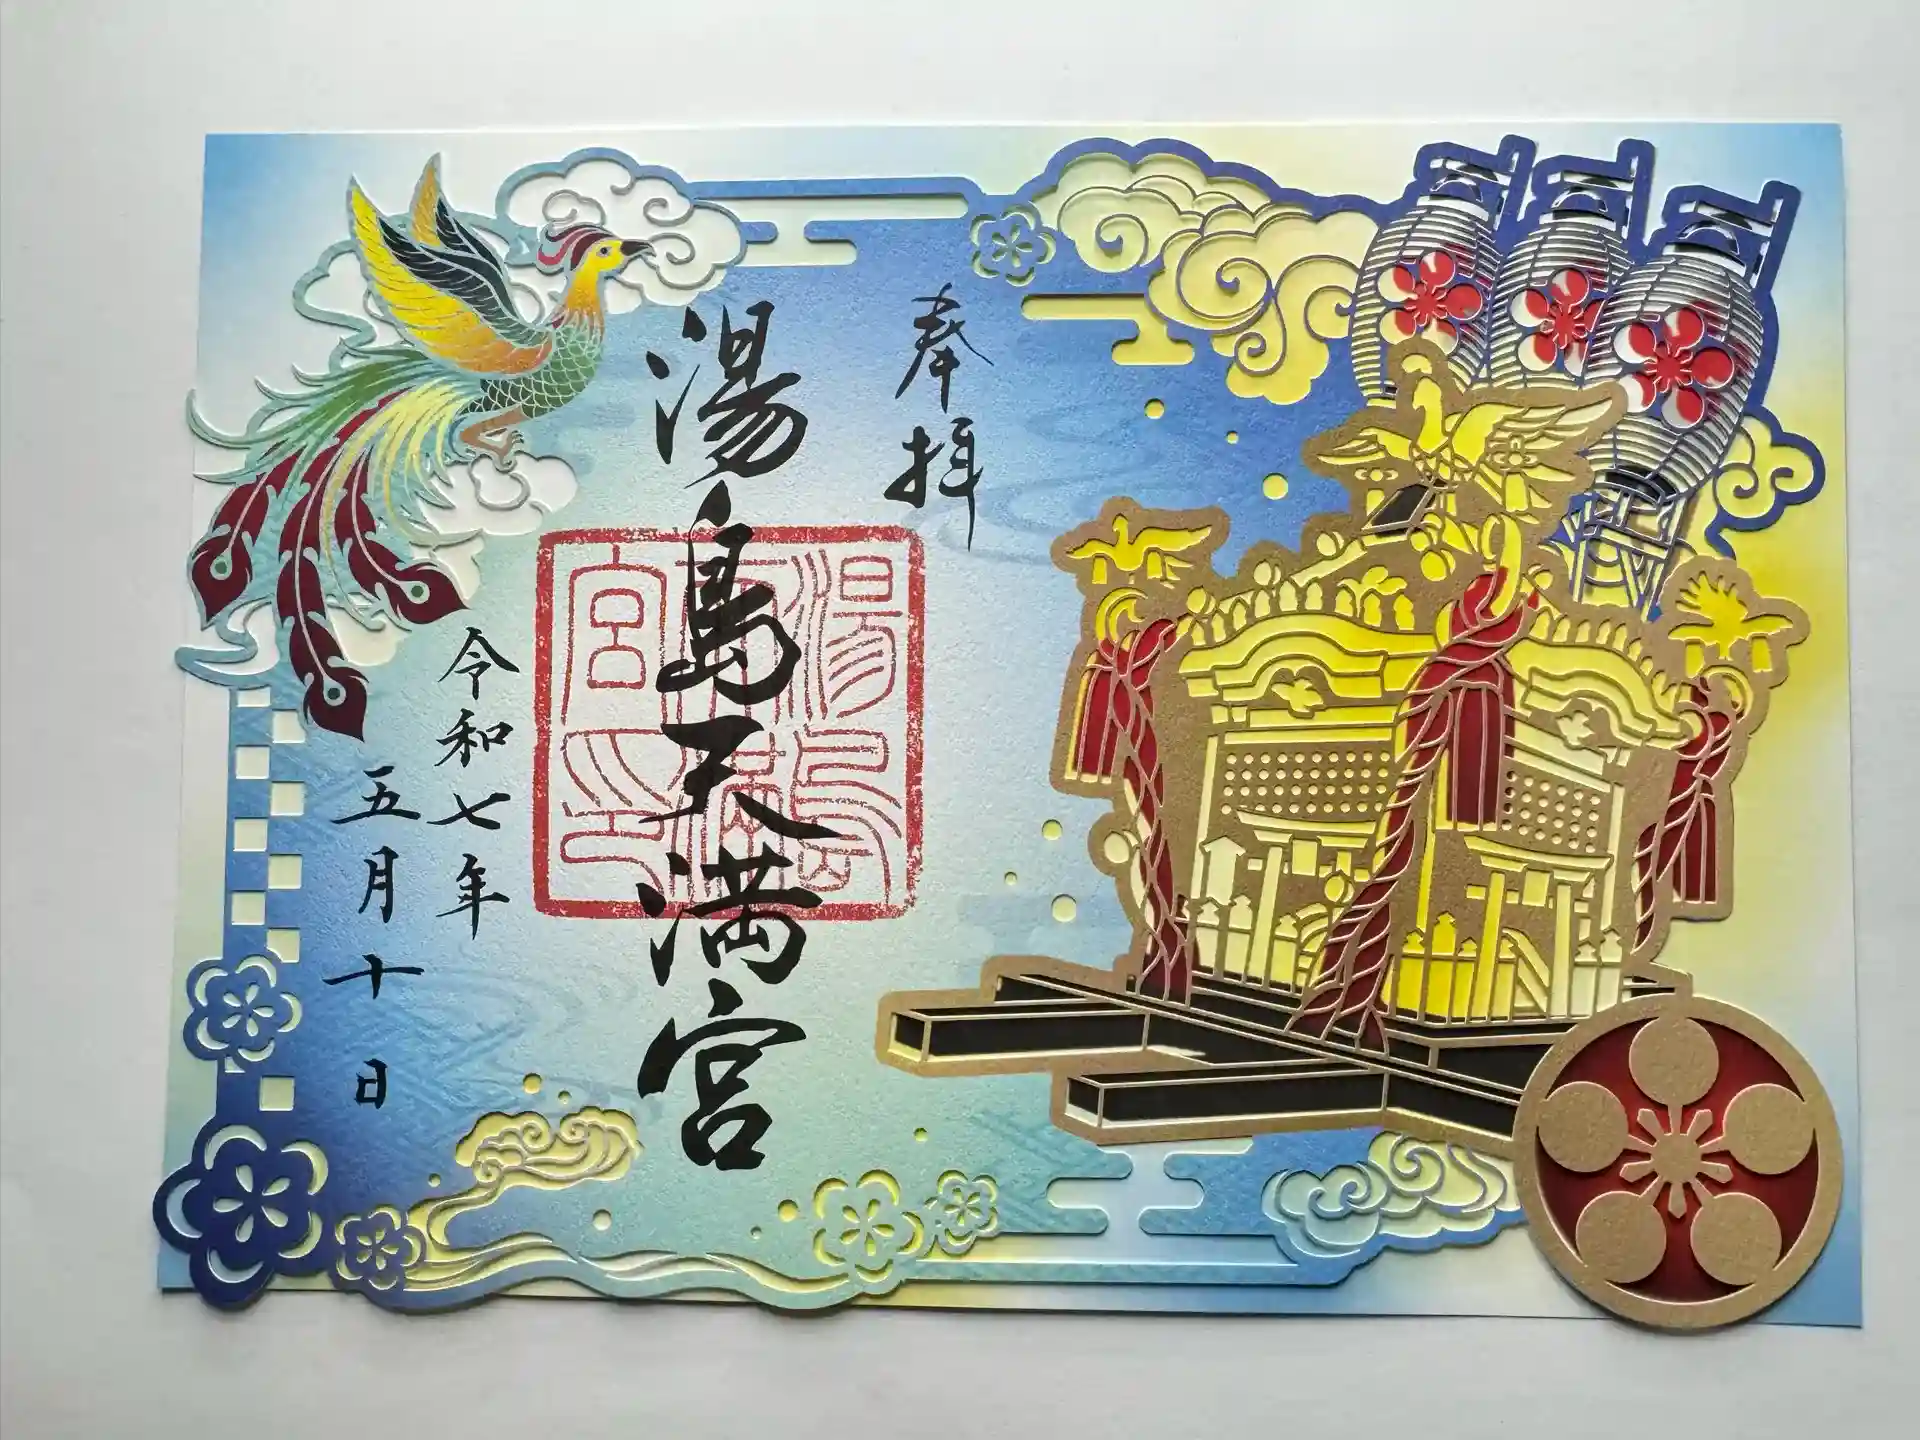 奉拝
湯島天満宮
湯島天満宮印
令和七年
五月十日